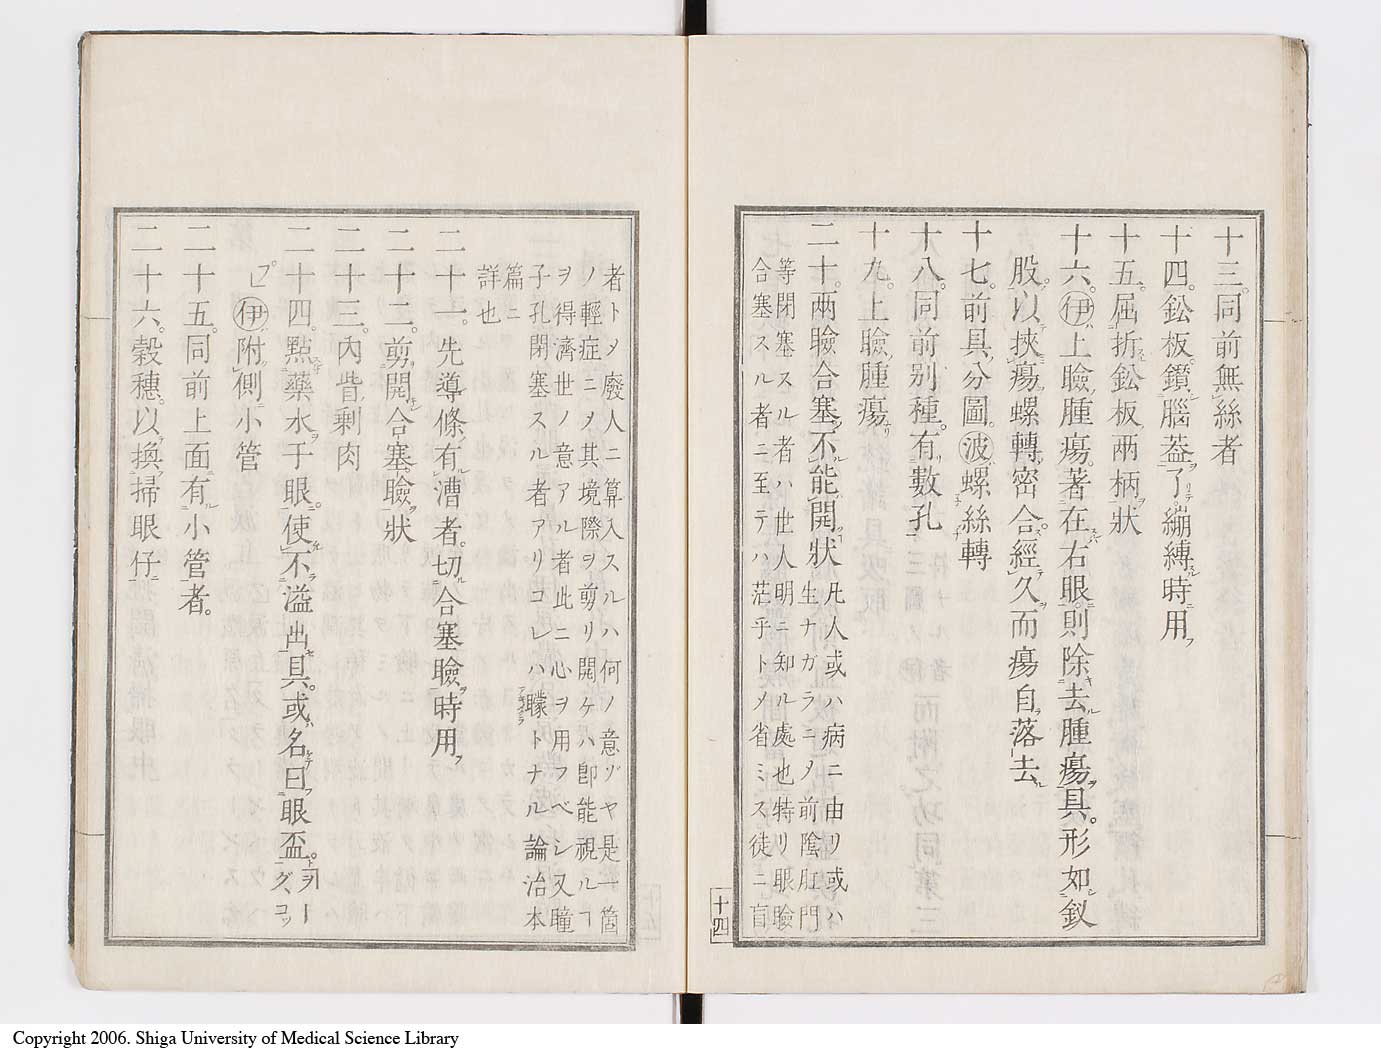 十三。同前無絲者
十四。鈆板。鑽腦葢了。繃縛時用
十五。屈折鈆板兩柄狀
十六。㊉伊上瞼腫瘍。著在右眼。則除去腫瘍具。形如釵
股。以挾瘍螺轉。密合經久而瘍自落去
十七。前具分圖。波螺絲轉
十八。同前別種。有數孔
十九。上瞼腫瘍
二十。兩瞼合塞不能開狀 凡人或ハ病ニ由リ或ハ
生ナガラニメ前陰肛門
等閉塞スル者ハ世人明ニ知ル處也特リ眼瞼
合塞スル者ニ至テハ茫乎トメ省ミス徒ニ盲
十四
者トメ廢人ニ算入スルハ何ノ意ゾヤ是一箇
ノ輕症ニヲ其境際ヲ剪リ開ケハ卽能視ルヿ
ヲ得濟世ノ意アル者此ニ心ヲ用フベシ又瞳
子孔閉塞スル者アリコレハ矇トナル論治本
篇ニ
詳也
二十一。先導條有漕者。切合塞瞼時用
二十二。剪開合塞。瞼狀
二十三。內眥剩肉
二十四。點藥水于眼。使不溢出具。或名曰眼盃。ヲーグ、コッ
プ 伊附側小管
二十五。同前上面有小管者。
二十六。穀穗。以換掃眼仔
Copyright 2006. Shiga University of Medical Science Library